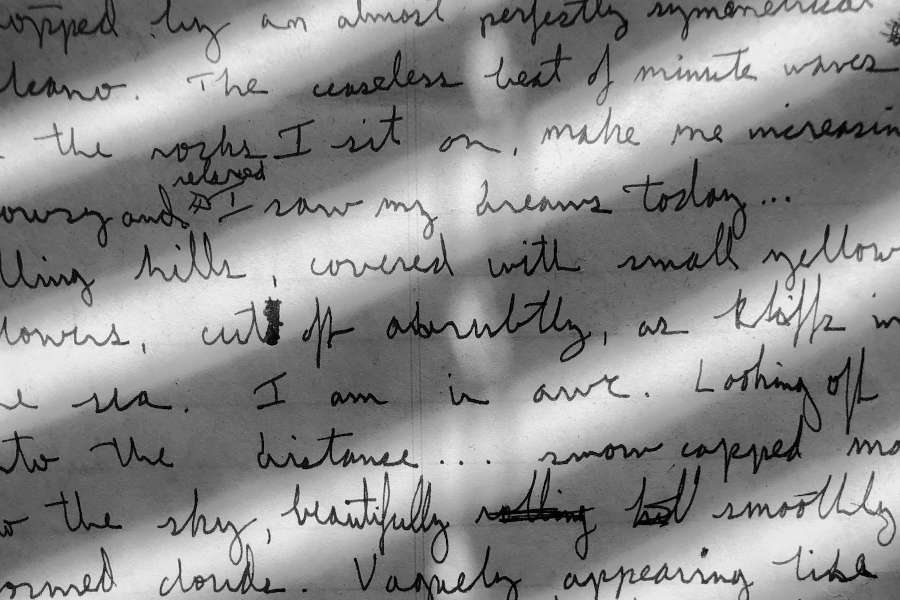 opped by an almost perfectly symmetrical
lcano. The ceaseless beat of minute waves
the rocks I sit on, make me increasin
relaxed
owsy and I saw my dreams today...
lling hills, covered with small yellow
lowers, cut off abruptly, as kliffs in
he sea. I am in awe. Looking off
nto the distance... snow capped mo
to the sky, beautifully rolling smoothly
ormed clouds. Vaguely appearing like